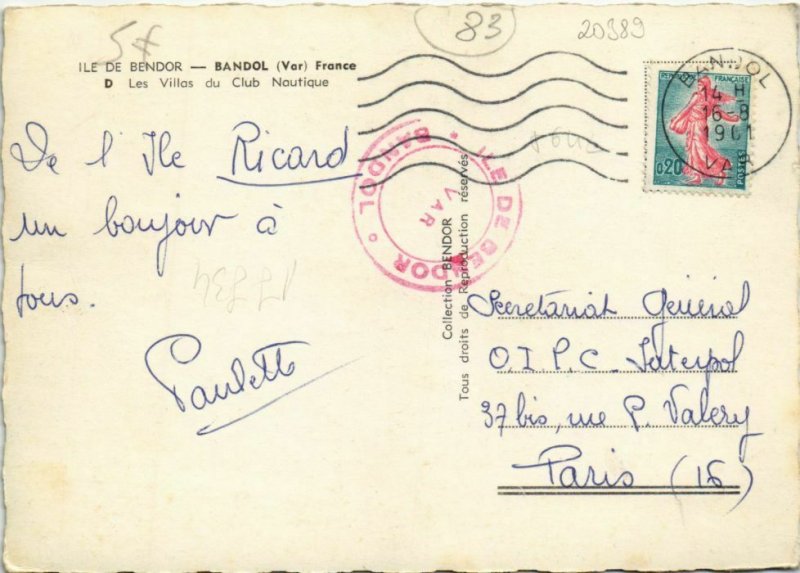 5f
83
20389
ILE DE BENDOR — BANDOL (Var) France
D Les Villas du Club Nautique
De l'Ile Ricard
un bonjour à
tous.
Paulette
17734
ILE DE BENDOR
BANDOL
VAR
Collection BENDOR
Tous droits de Reproduction réservés
FRANÇAISE
0,20
POSTES
BANDOL
14 H
16-8
1961
VAR
Secretariat Général
O.I.P.C. Interpol
37 bis, rue P. Valery
Paris (16)